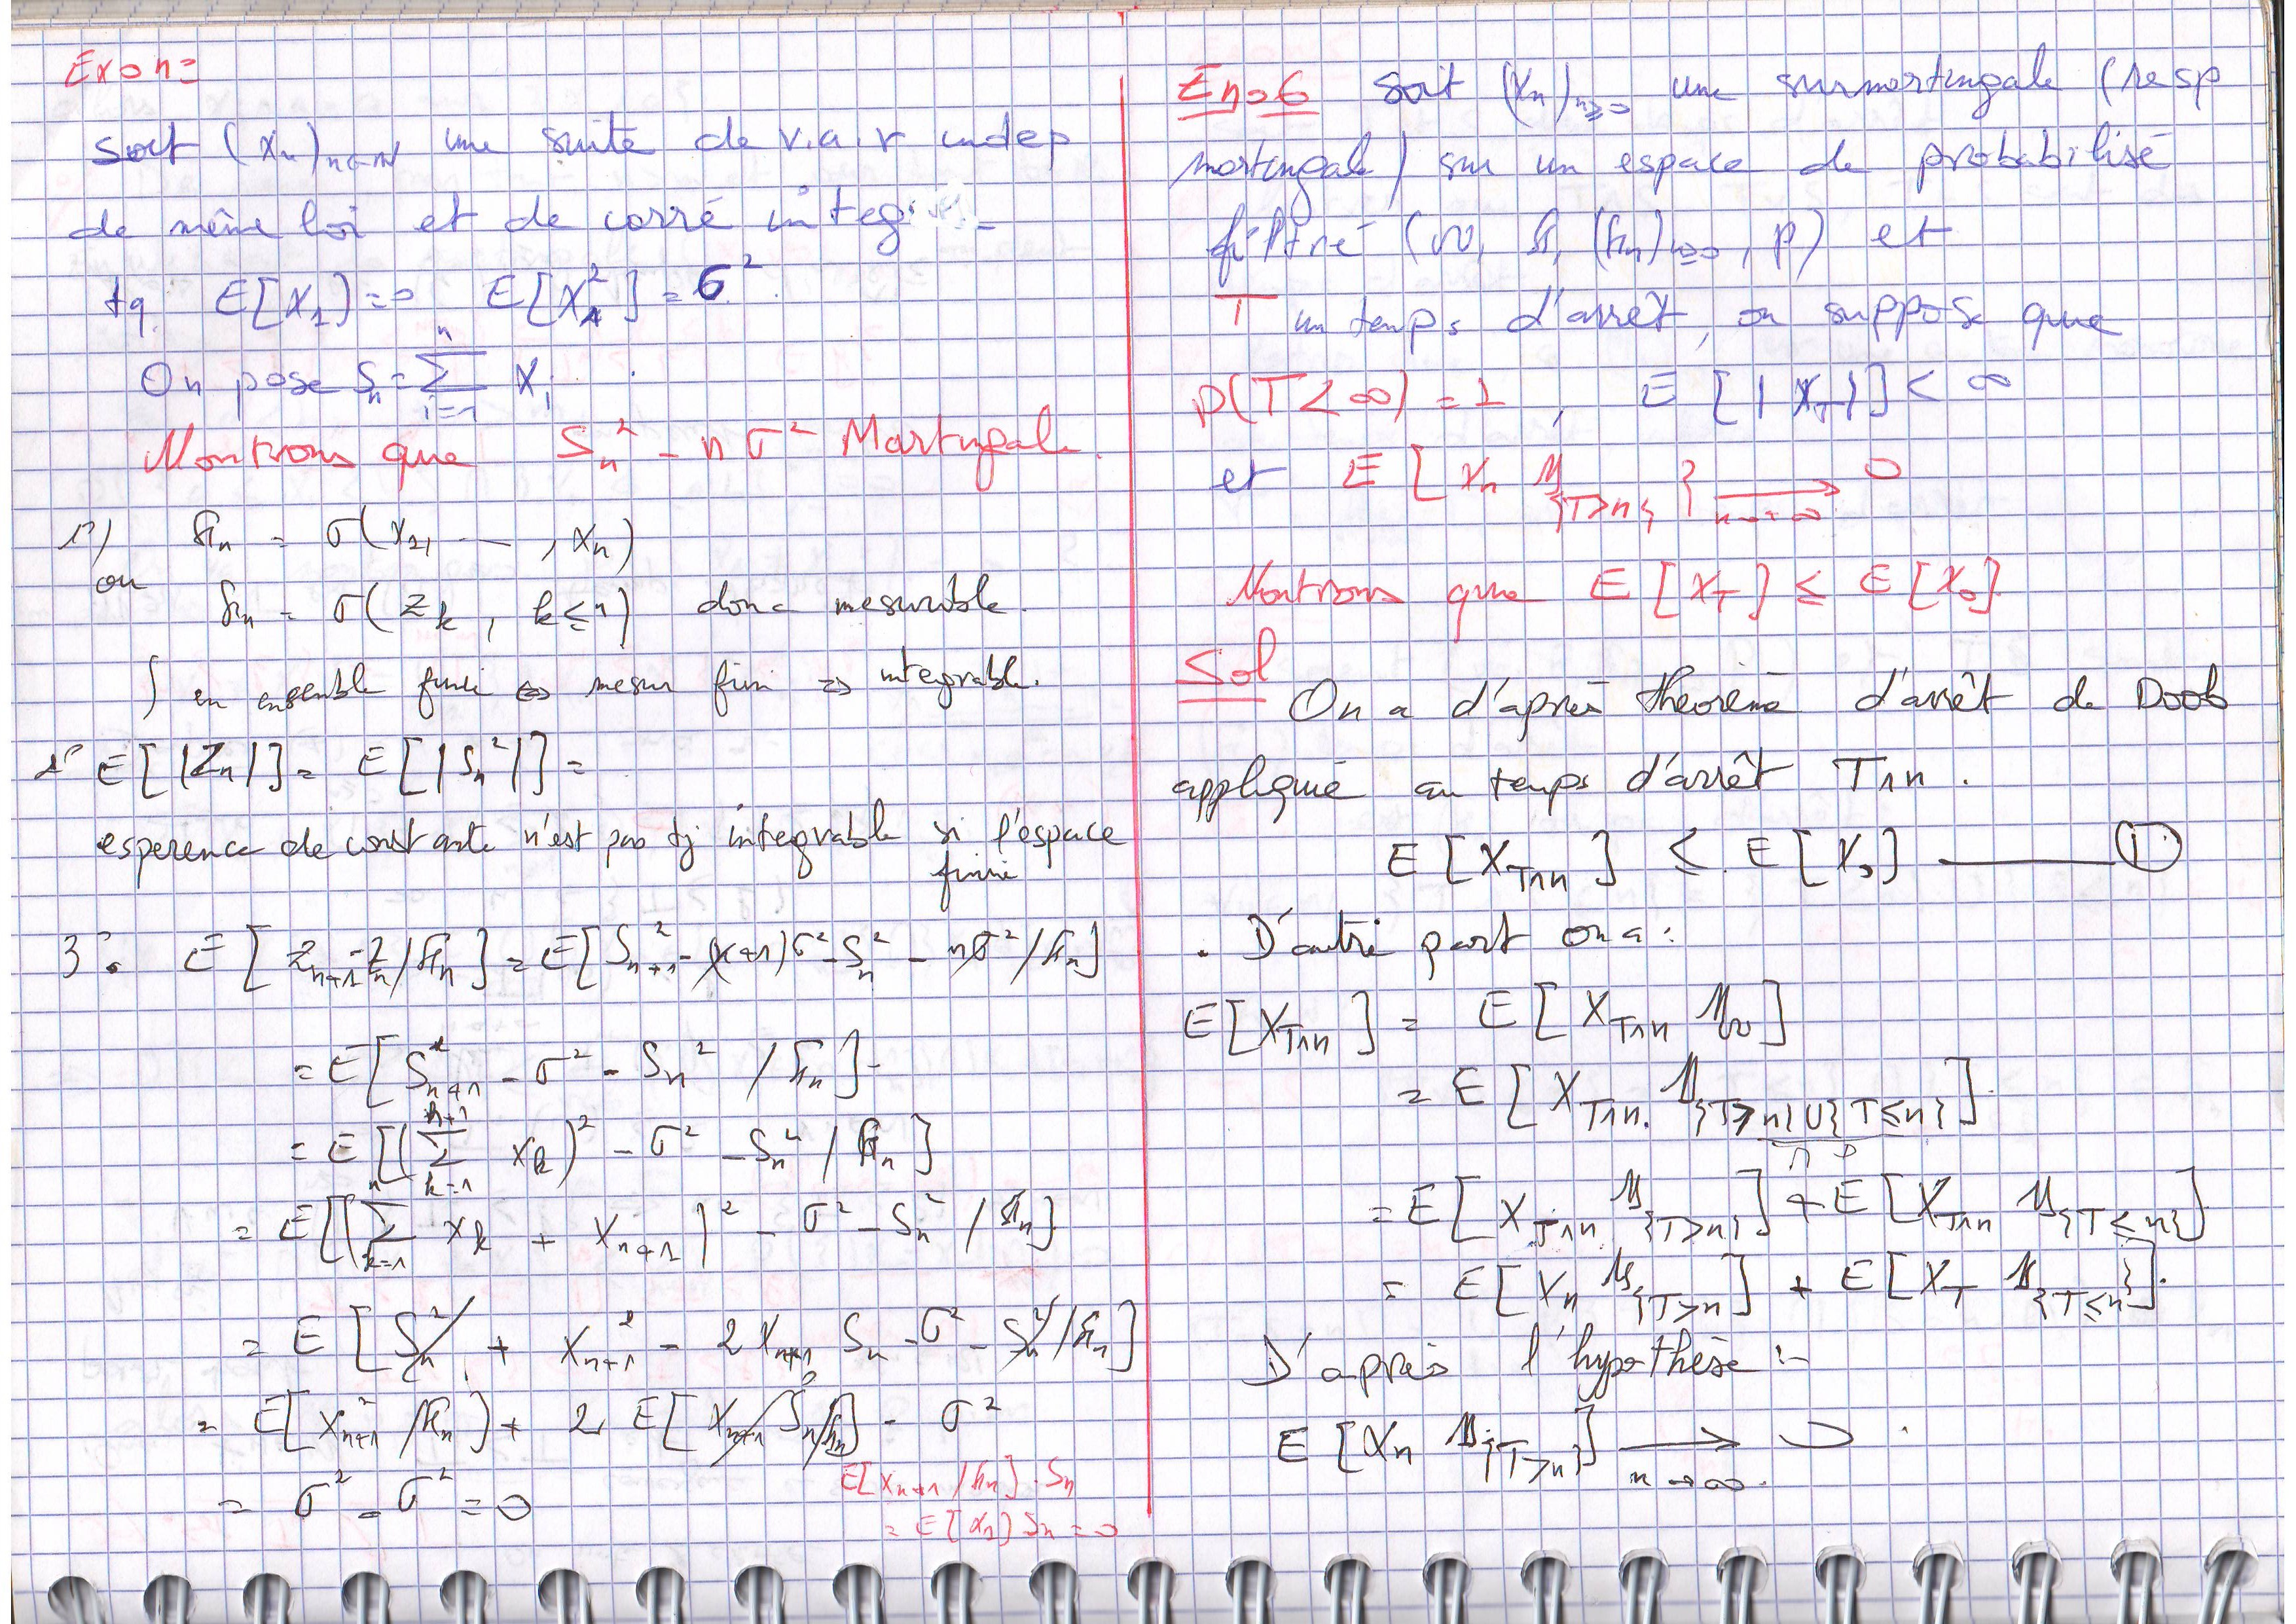 Exo n=
soit (x_n)_{n∈N} une suite de v.a.r indep
de même loi et de carré integ
tq. E[X_1)=0 E[X_1^2]=σ^2.
On pose S_n=∑_{i=1}^{n} X_i .
Montrons que S_n^2 - nσ^2 Martingale.
1°) F_n = σ(x_1, — , x_n)
ou F_n = σ(Z_k, k≤n) donc mesurable.
∫ en ensemble finie ⇔ mesur fini ⇒ integrable.
2° E[|Z_n|] = E[|S_n^2|] =
esperence de constante n'est pas tj integrable si l'espace
finie
3°. E[Z_{n+1}-Z_n/F_n] = E[S_{n+1}^2-(n+1)σ^2-S_n^2 - nσ^2/F_n]
= E[S_{n+1}^2 - σ^2 - S_n^2 / F_n]
= E[(∑_{k=1}^{n+1} x_k)^2 - σ^2 - S_n^2 / F_n]
= E[(∑_{k=1}^{n} x_k + X_{n+1})^2 - σ^2 - S_n^2 / F_n]
= E[S_n^2 + X_{n+1}^2 - 2X_{n+1} S_n - σ^2 - S_n^2/F_n]
= E[X_{n+1}^2 /F_n) + 2 E[X_{n+1} S_n/F_n] - σ^2
E[X_{n+1}/F_n].S_n
= σ^2 - σ^2 = 0
= E[X_1) S_n = 0
Exo6 soit (X_n)_{n≥0} une surmartingale (resp
martingale) sur un espace de probabilisé
filtré (Ω, F, (F_n)_{n≥0}, P) et
T un temps d'arrêt, on suppose que
P(T<∞) = 1, E[|X_T|] < ∞
et E[X_n 1_{T>n}] → 0 n→∞
Montrons que E[X_T] ≤ E[X_0]
Sol
On a d'après théorème d'arrêt de Doob
appliquée au temps d'arrêt T∧n.
E[X_{T∧n}] ≤ E[X_0] —— ①
. D'autre part on a:
E[X_{T∧n}] = E[X_{T∧n} 1_Ω]
= E[X_{T∧n}. 1_{{T>n}∪{T≤n}}].
= E[X_{T∧n} 1_{T>n}] + E[X_{T∧n} 1_{T≤n}]
= E[X_n 1_{T>n}] + E[X_T 1_{T≤n}].
D'après l'hypothèse :-
E[X_n 1_{T>n}] → 0 . n→∞.